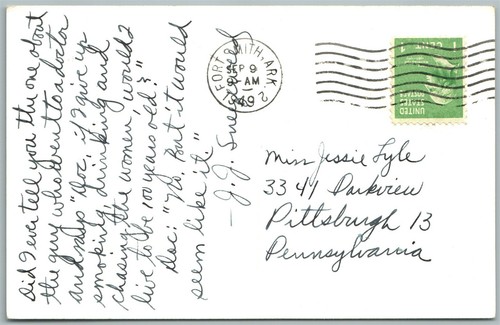 Did I ever tell you the one about
the guy who went to a doctor
and says "Doc, if I give up
smoking, drinking and
chasing the women, would I
live to be 100 years old?"
Doc: "No. But it would
seem like it."
FORT SMITH, ARK. 2
SEP 9
AM
1949
1 CENT 1
UNITED
STATES
POSTAGE
Miss Jessie Lyle
3341 Parkview
Pittsburgh 13
Pennsylvania